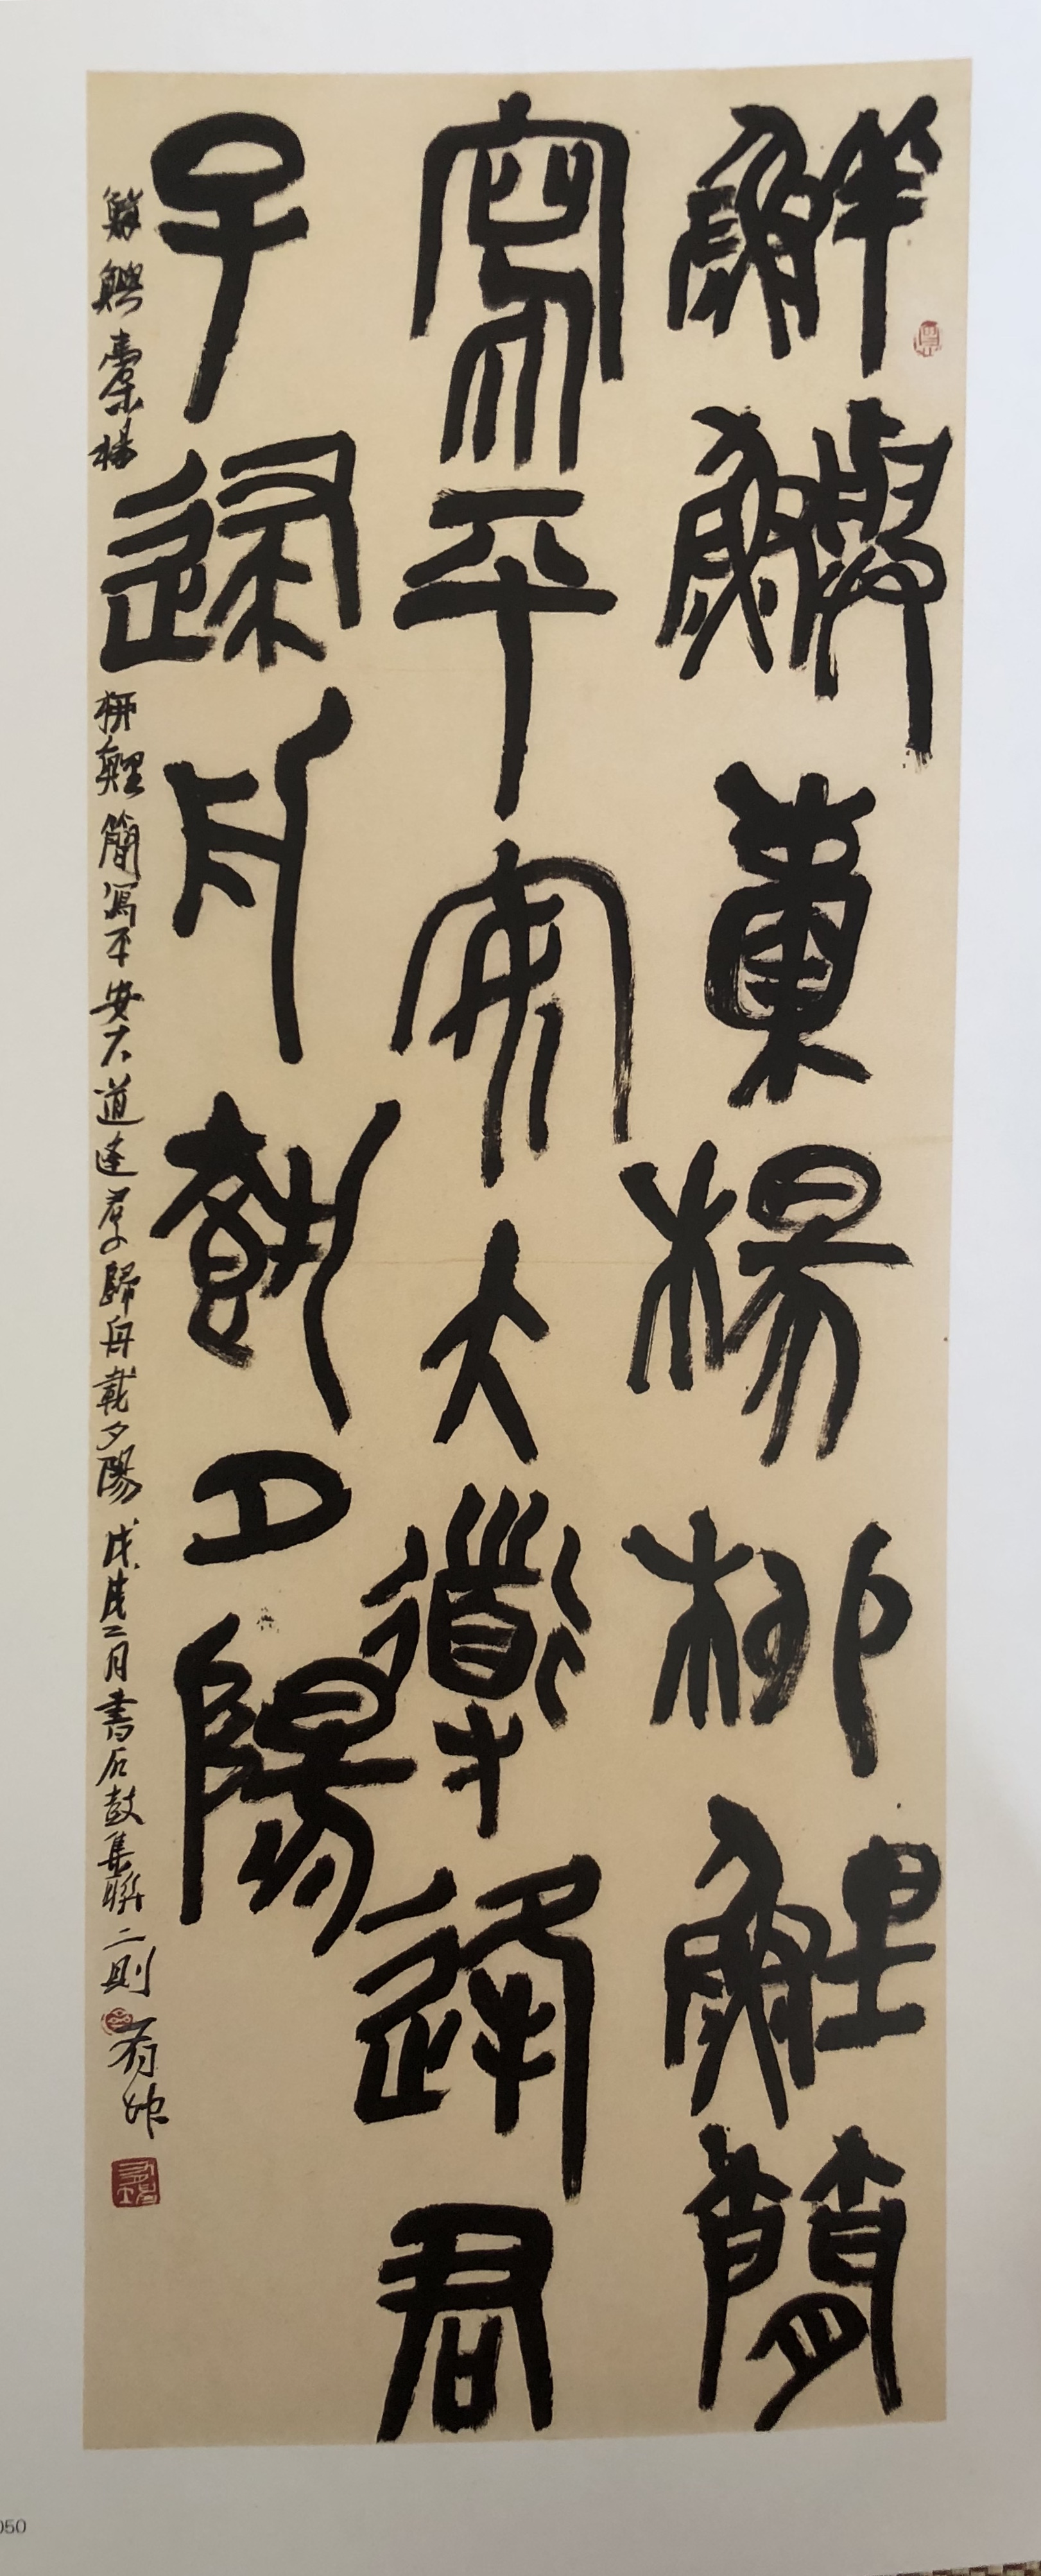 鮮鱮橐楊柳鯉簡
寫平安大道逢君
子歸舟載夕陽
鮮鱮橐楊柳鯉簡寫平安大道逢君子歸舟載夕陽 戊戌二月書石鼓集聯二則 有
050